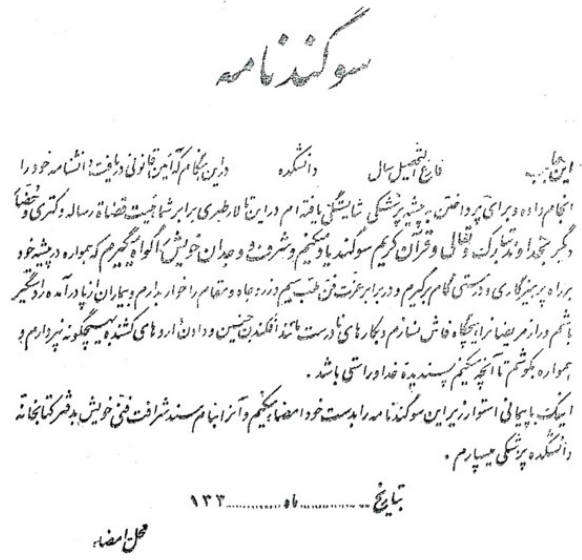 سوگندنامه
اینجانب فارغ التحصیل سال دانشکده در این هنگام که آئین قانونی دریافت دانشنامه خود را
انجام داده و برای پرداختن به پیشه پزشکی شایستگی یافته ام در این تالار طبری برابر شما هیئت قضاة رساله دکتری و حضار
دیگر بخداوند تبارک و تعالی و قرآن کریم سوگند یاد میکنم و شرف و وجدان خویش را گواه میگیرم که همواره در پیشه خود
بر راه پرهیزگاری و درستی گام برگیرم و در برابر عزت فن طب سیم و زر و جاه و مقام را خوار بدارم و بیماران از پا درآمده را دستگیر
باشم و راز مریضان را هیچگاه فاش نسازم و بکارهای نادرست مانند افکندن جنین و دادن داروهای کشنده بهیچگونه نپردازم و
همواره بکوشم تا آنچه میکنم پسندیده خدا و راستی باشد .
اینک با پیمانی استوار زیر این سوگندنامه را بدست خود امضاء میکنم و آنرا بنام سند شرافت فنی خویش بدفتر کتابخانه
دانشکده پزشکی میسپارم .
بتاریخ ............ ماه ............ ۱۳۳
محل امضاء